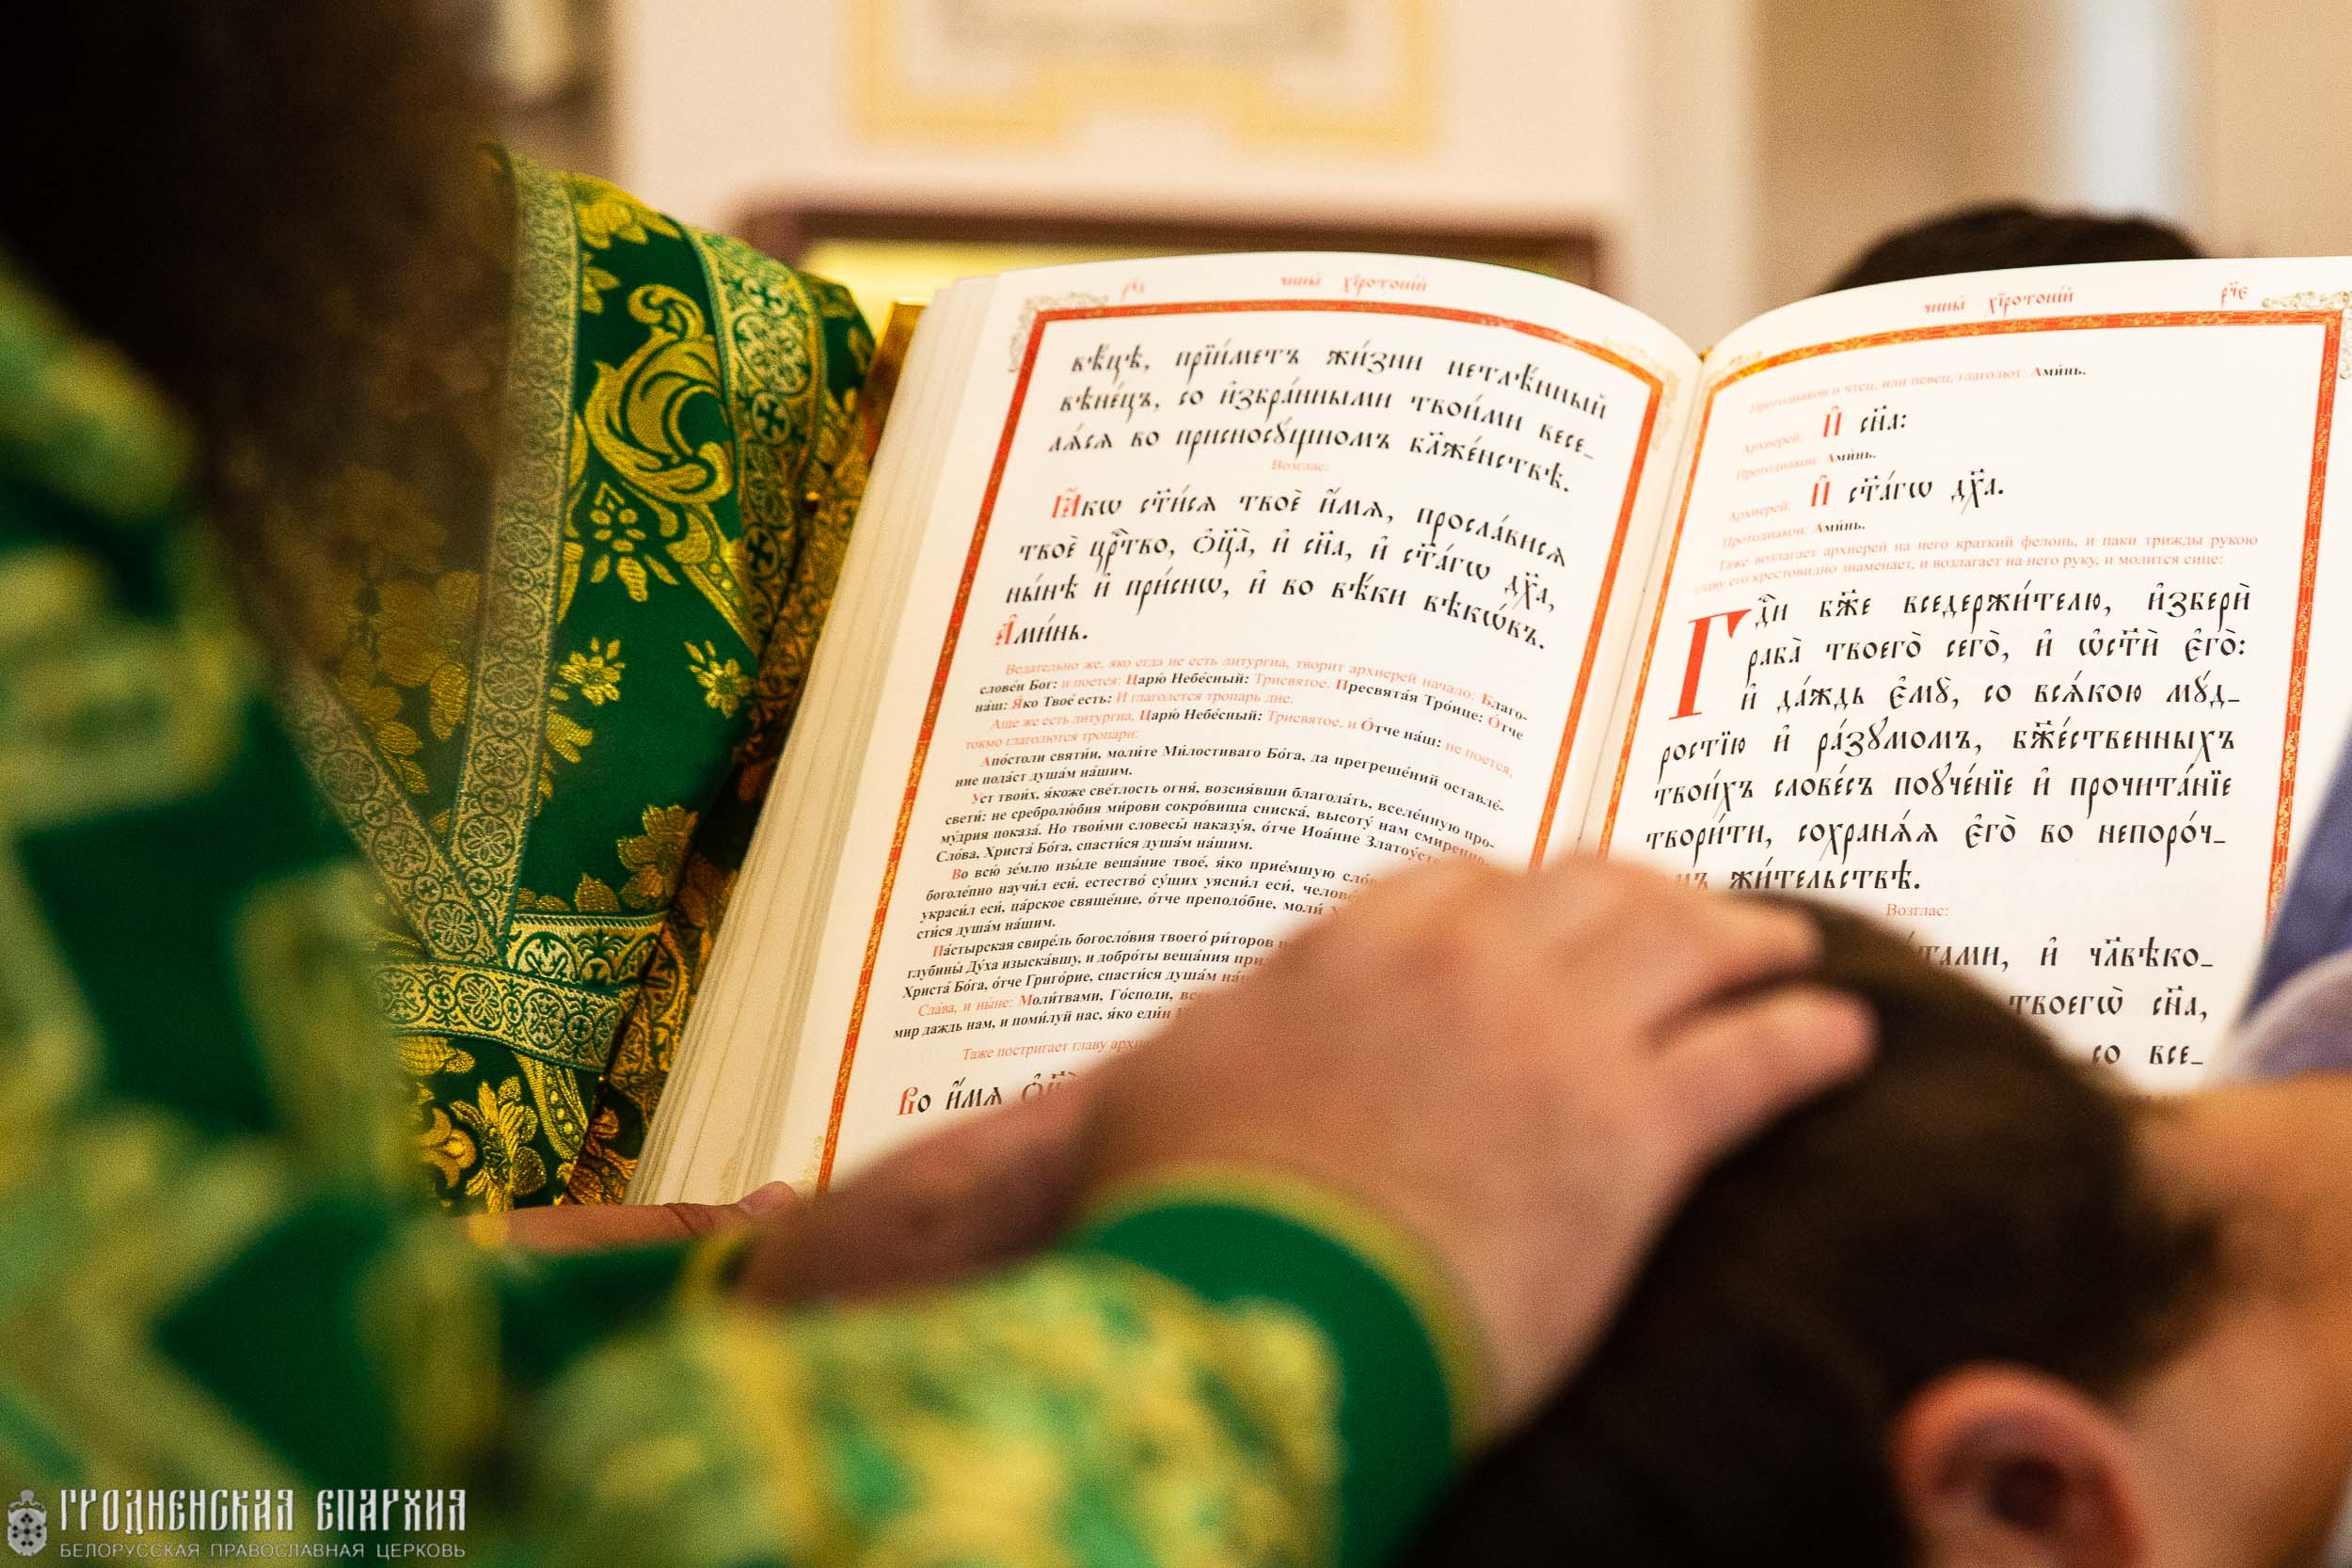 чины̀ хїротонїй
вѣ́цѣ, прїи́метъ жи́зни нетлѣ́нный
вѣне́цъ, со и҆збра́нными твои́ми весе_
лѧ́сѧ во присносꙋ́щномъ бл҃же́нствѣ.
Возглас:
Ꙗ҆́кѡ ст҃и́сѧ твоѐ и҆́мѧ, просла́висѧ
твоѐ цр҃тво, ѻ҆ц҃а̀, и҆ сн҃а, и҆ ст҃а́гѡ дх҃а,
ны́нѣ и҆ при́снѡ, и҆ во вѣ́ки вѣкѡ́въ.
А҆ми́нь.
Ведательно же, яко егда не есть литургиа, творит архиерей начало: Благо-
слове́н Бог: и поется: Царю́ Небе́сный: Трисвятое. Пресвята́я Тро́ице: О́тче
на́ш: Я́ко Твое́ есть: И глаголется тропарь дне.
Аще же есть литургиа, Царю́ Небе́сный: Трисвятое, и О́тче на́ш: не поется,
токмо глаголются тропари:
Апо́столи святи́и, моли́те Ми́лостиваго Бо́га, да прегреше́ний оставле́-
ние пода́ст душа́м на́шим.
Уст твои́х, я́коже све́тлость огня́, возсия́вши благода́ть, вселе́нную про-
свети́: не сребролю́бия ми́рови сокро́вища сниска́, высоту́ нам смиренно-
му́дрия показа́. Но твои́ми словесы́ наказу́я, о́тче Иоа́нне Златоу́сте
Сло́ва, Христа́ Бо́га, спасти́ся душа́м на́шим.
Во всю́ зе́млю изы́де веща́ние твое́, я́ко прие́мшую сло́
боголе́пно научи́л еси́, естество́ су́щих уясни́л еси́, челове́
украси́л еси́, ца́рское свяще́ние, о́тче преподо́бне, моли́ Х
сти́ся душа́м на́шим.
Па́стырская свире́ль богосло́вия твоего́ ри́торов
глубины́ Ду́ха изыска́вшу, и добро́ты веща́ния при
Христа́ Бо́га, о́тче Григо́рие, спасти́ся душа́м на́
Сла́ва, и ны́не: Моли́твами, Го́споди, вс
мир даждь нам, и поми́луй нас, я́ко еди́н
Таже постригает главу архи
Во и҆́мѧ
чины̀ хїротонїй рч҃е
Протодиакон и чтец, или певец, глаголют: Ами́нь.
Архиерей: И҆ сн҃а:
Протодиакон: Ами́нь.
Архиерей: И҆ ст҃а́гѡ дх҃а.
Протодиакон: Ами́нь.
Таже возлагает архиерей на него краткий фелонь, и паки трижды рукою
главу его крестовидно знаменает, и возлагает на него руку, и молится сице:
Гдⷭ҇и бж҃е вседержи́телю, и҆збери̂
раба̀ твоего̀ сего̀, и҆ ѡ҆ст҃ѝ є҆го̀:
и҆ да́ждь є҆мꙋ̀, со всѧ́кою мꙋ́д_
ростїю и҆ ра́зꙋмомъ, бж҃е́ственныхъ
твои́хъ слове́съ поꙋче́нїе и҆ прочита́нїе
твори́ти, сохранѧ́ѧ є҆го̀ во непоро́ч_
жи́тельствѣ.
Возглас:
тами, и҆ чл҃вѣко_
твоегѡ̀ сн҃а,
со все_
ГРОДНЕНСКАЯ ЕПАРХИЯ
БЕЛОРУССКАЯ ПРАВОСЛАВНАЯ ЦЕРКОВЬ